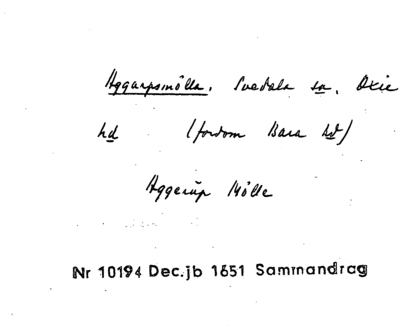 Aggarpsmölla. Svedala sn, Oxie
hd (fordom Bara hd)
Aggerüp Mölle
Nr 10194 Dec.jb 1651 Sammandrag